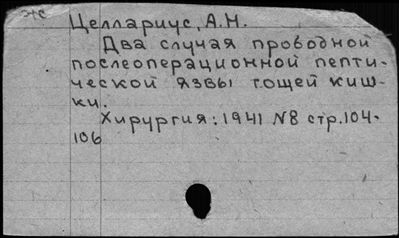 Целлариус, А.Н.
Два случая проводной
послеоперационной пепти-
ческой язвы тощей киш-
ки.
Хирургия: 1941 №8 стр.104-
106